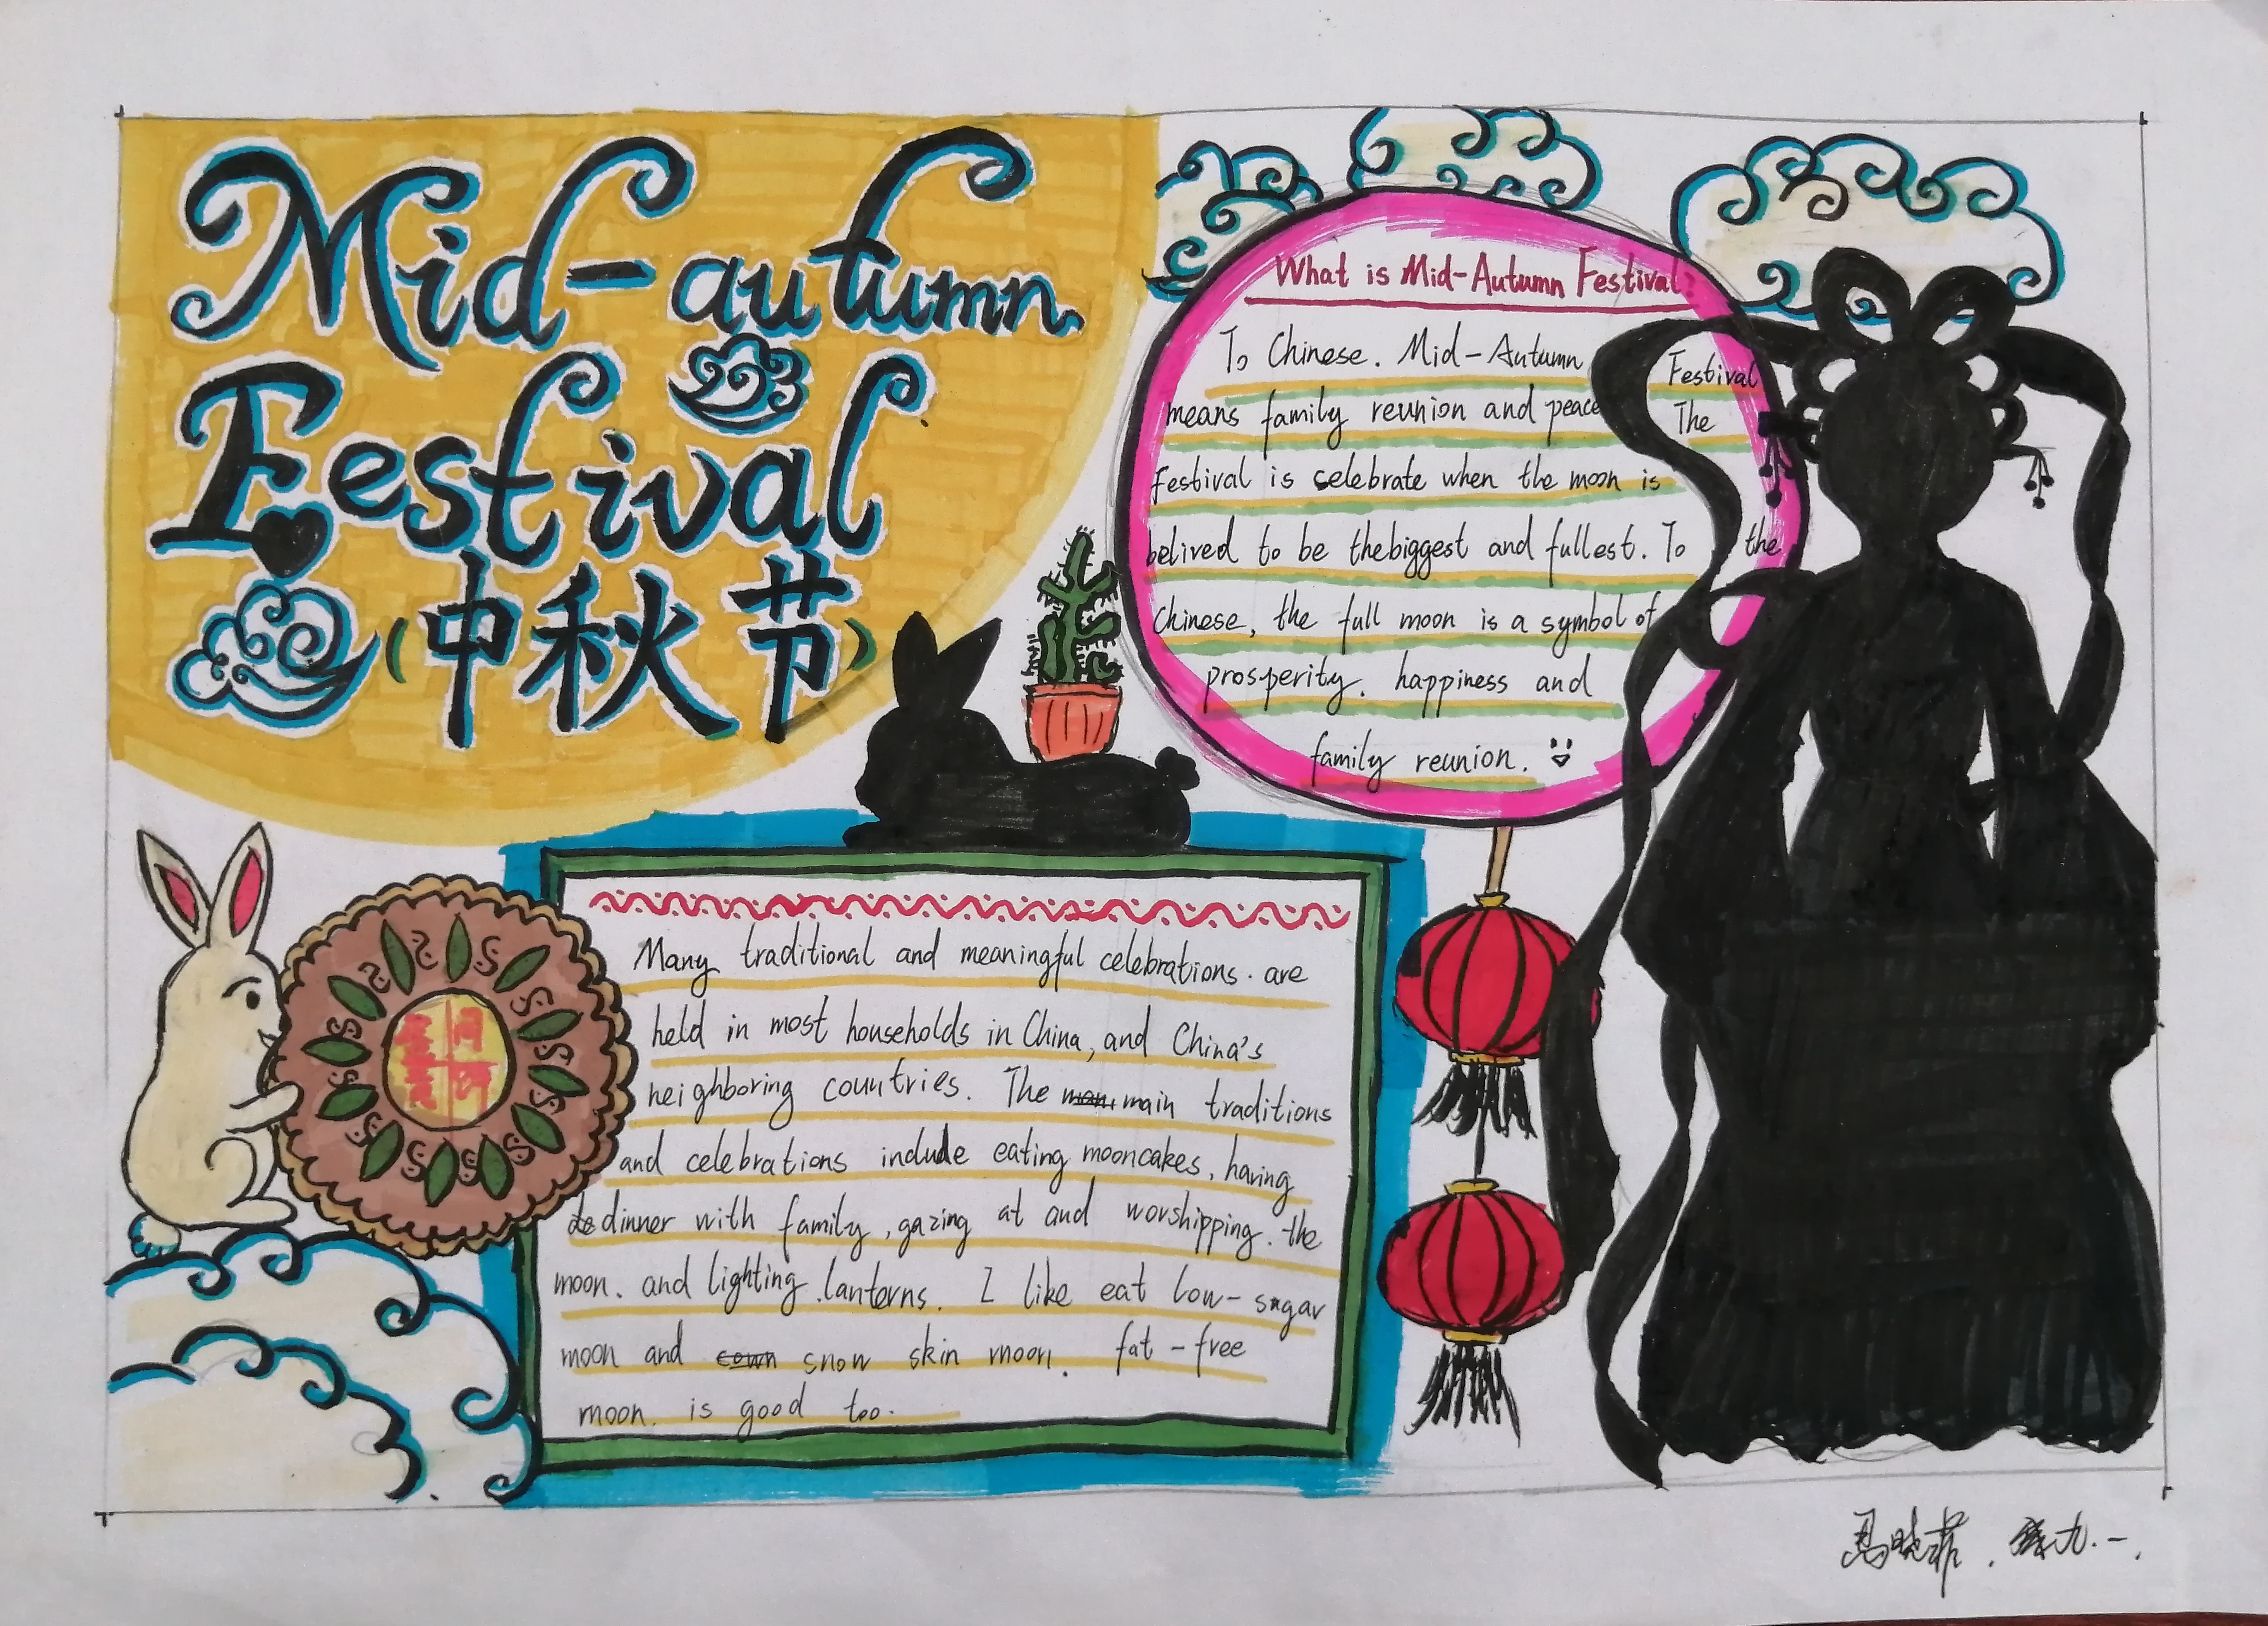 Mid-autumn
Festival
(中秋节)
What is Mid-Autumn Festival?
To Chinese. Mid-Autumn Festival
means family reunion and peace The
festival is celebrate when the moon is
belived to be thebiggest and fullest. To the
Chinese, the full moon is a symbol of
prosperity. happiness and
family reunion.
Many traditional and meaningful celebrations. are
held in most households in China, and China's
neighboring countries. The main traditions
and celebrations include eating mooncakes, having
dinner with family, gazing at and worshipping. the
moon. and lighting lanterns. I like eat low-sugar
moon and snow skin moon. fat-free
moon. is good too.
马晓菲. 九.一.